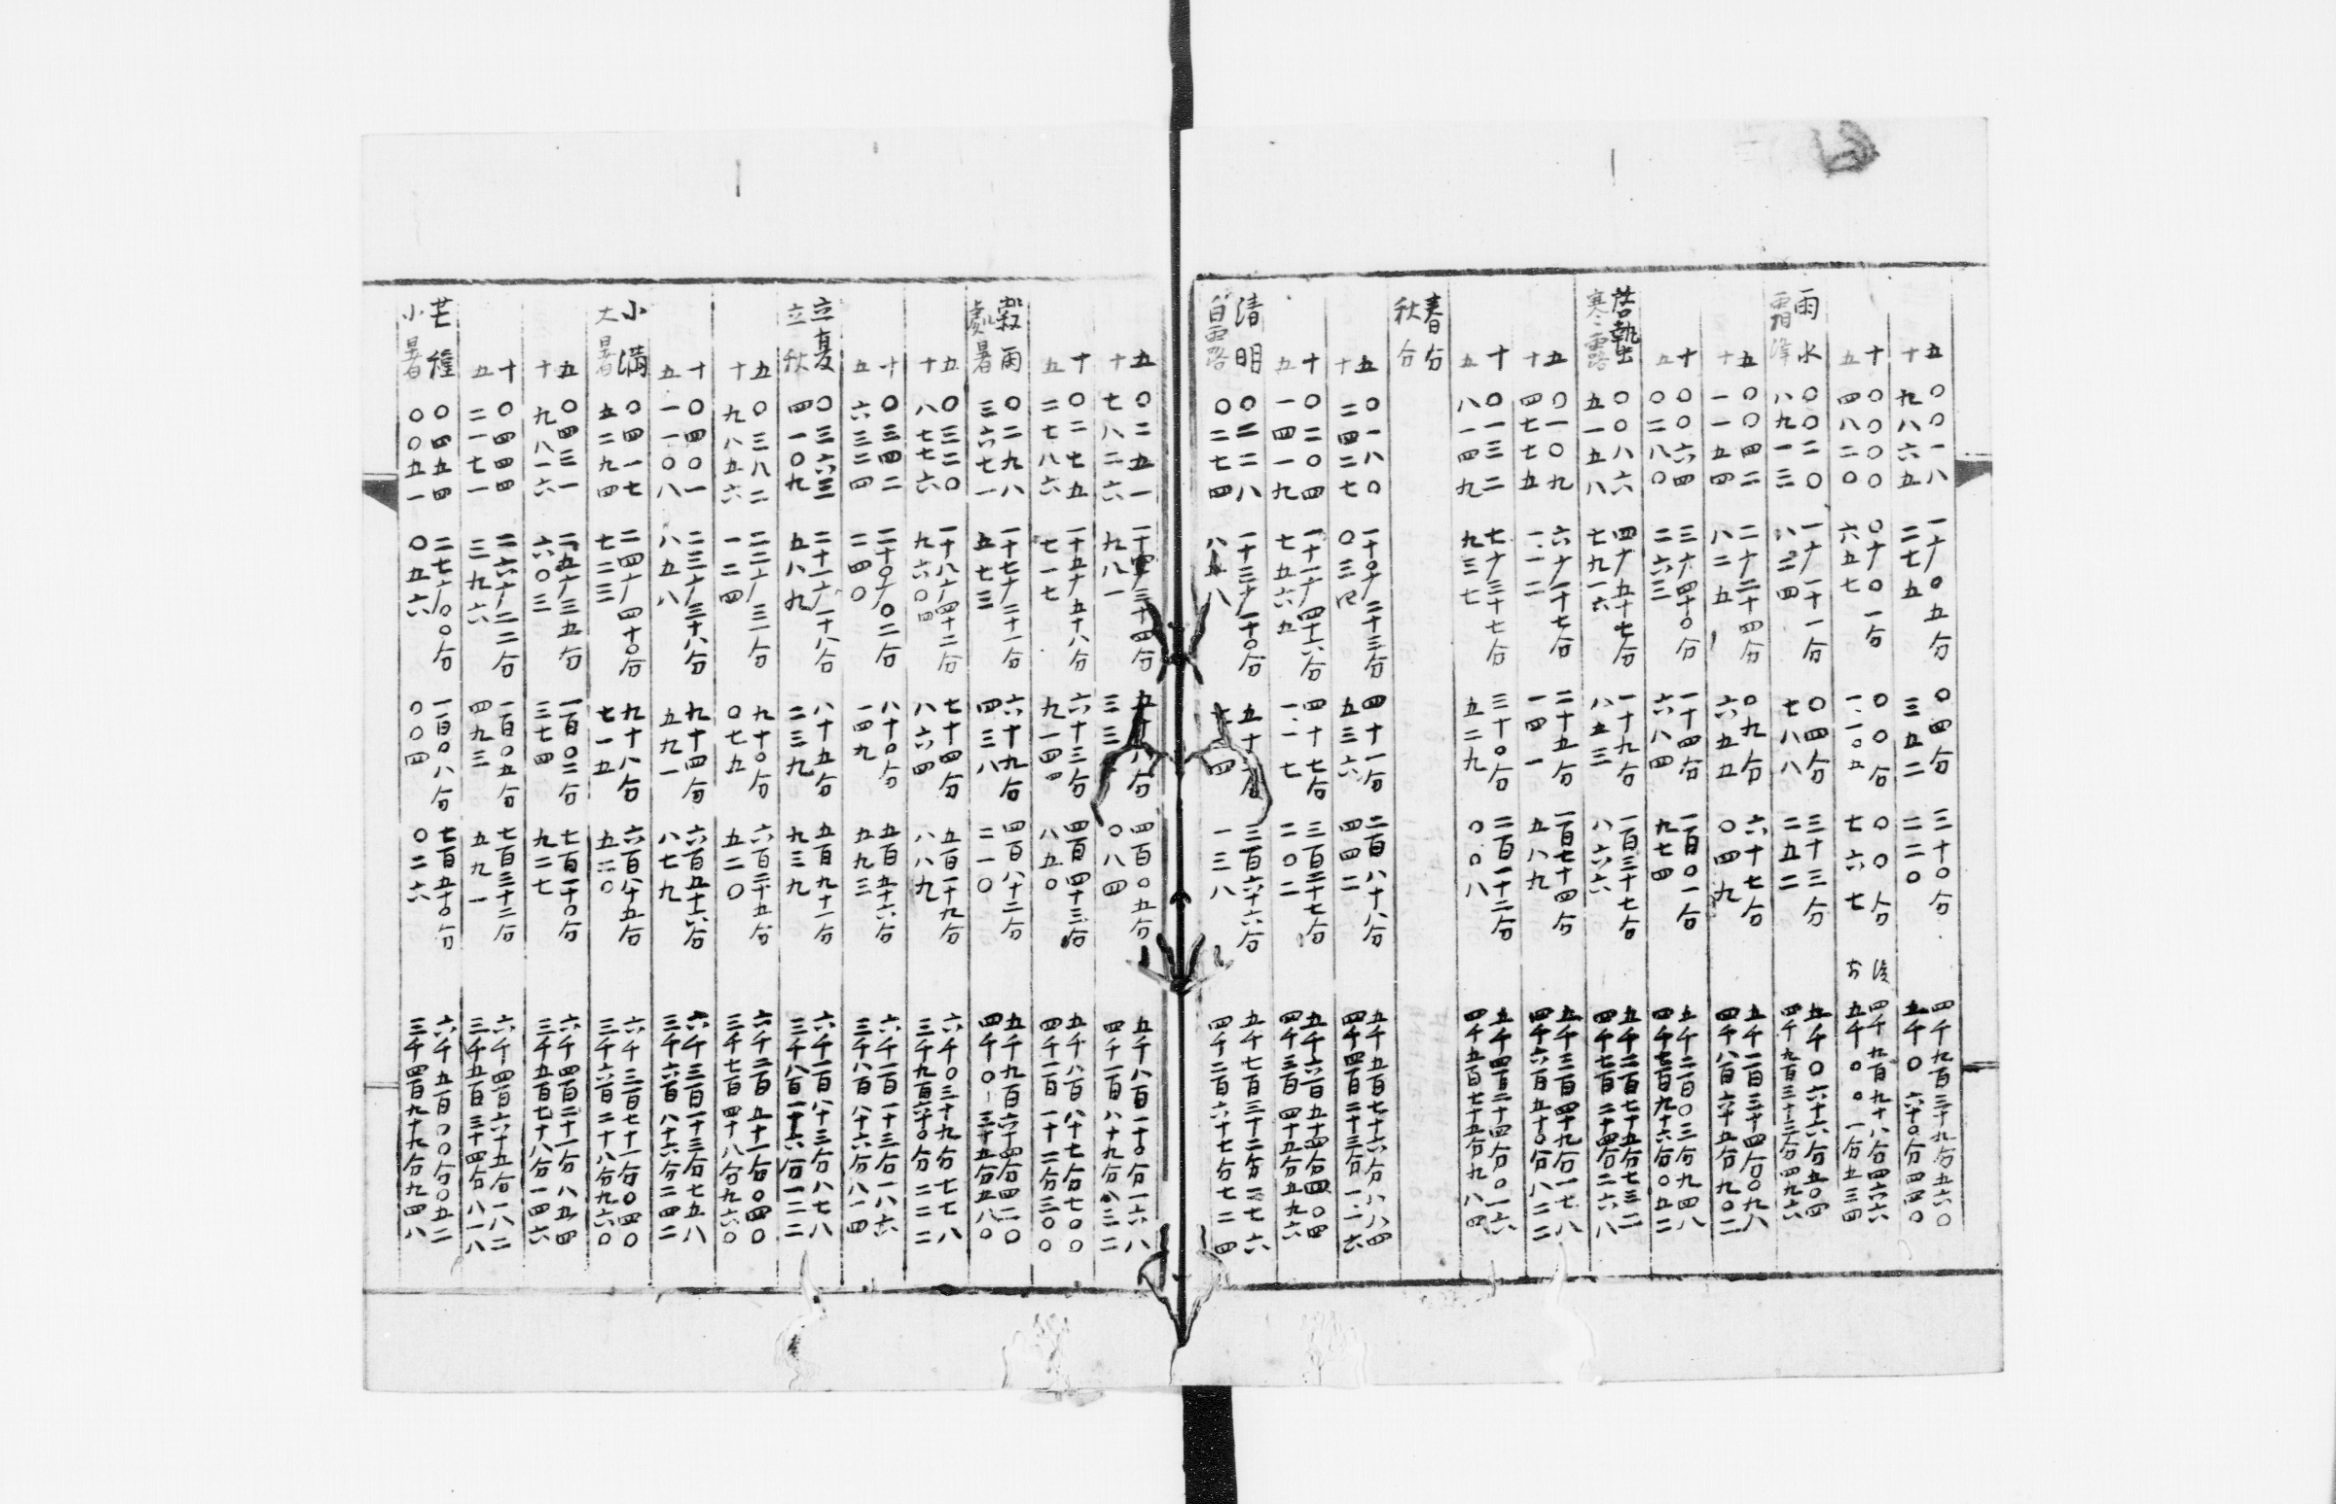 五 〇〇一八 一广〇五分 〇四分 三十〇分 四千九百三十九分五六〇
十 九八六五 二七五 三五二 二二〇 五千〇六十〇分四四〇
十 〇〇〇〇 〇广〇一分 〇〇分 〇〇分 後 四千九百九十八分四六六
五 四八二〇 六五七 一一〇五 七六七 前 五千〇〇一分五三四
雨水 〇〇二〇 一广一十一分 〇四分 三十三分 五千〇六十六分五〇四
霜降 八九一三 八三四 七八八 二五二 四千九百三十三分四九六
五 〇〇四二 二广二十四分 〇九分 六十七分 五千一百三十四分〇九八
十 一一五四 八二五 六五五 〇四九 四千八百六十五分九〇二
十 〇〇六四 三广四十〇分 一十四分 一百〇一分 五千二百〇三分九四八
五 〇二八〇 二六三 六八四 九七四 四千七百九十六分〇五二
啓蟄 〇〇八六 四广五十七分 一十九分 一百三十七分 五千二百七十五分七三二
寒露 五一五八 七九一六 八五三 八六六 四千七百二十四分二六八
五 〇一〇九 六广一十七分 二十五分 一百七十四分 五千三百四十九分一七八
十 四七七五 一一二 一四一 五八九 四千六百五十〇分八二二
十 〇一三二 七广三十七分 三十〇分 二百一十二分 五千四百二十四分〇一六
五 八一四九 九三七 五二九 〇〇八 四千五百七十五分九八四
春分
秋分
五 〇一八〇 一十〇广二十三分 四十一分 二百八十八分 五千五百七十六分八八四
十 二四二七 〇三 五三六 四四二 四千四百二十三分一一六
十 〇二〇四 一十一广四十六分 四十七分 三百二十七分 五千六百五十四分四〇四
五 一四一九 七五六五 一一七 二〇二 四千三百四十五分五九六
清明 〇二二八 一十三广一十〇分 五十分 三百六十六分 五千七百三十二分二七六
白露 〇二七四 八八 四 一三八 四千二百六十七分七二四
五 〇二五一 一十四广三十四分 五十八分 四百〇五分 五千八百一十〇分一六八
十 七八二六 九八一 三三 〇八四 四千一百八十九分八三二
十 〇二七五 一十五广五十八分 六十三分 四百四十三分 五千八百八十七分七〇〇
五 二七八六 七一七 九一四四 八五〇 四千一百一十二分三〇〇
穀雨 〇二九八 一十七广二十一分 六十九分 四百八十二分 五千九百六十四分四二〇
處暑 三六七一 五七三 四三八 二一〇 四千〇三十五分五八〇
五 〇三二〇 一十八广四十二分 七十四分 五百一十九分 六千〇三十九分七七八
十 八七七六 九六〇四 八六四 八八九 三千九百六十〇分二二二
十 〇三四二 二十〇广〇二分 八十〇分 五百五十六分 六千一百一十三分一八六
五 六三二四 二四〇 一四九 五九三 三千八百八十六分八一四
立夏 〇三六三 二十一广一十八分 八十五分 五百九十一分 六千一百八十三分八七八
立秋 四一〇九 五八九 二三九 九三九 三千八百一十六分一二二
五 〇三八二 二二广三一分 九十〇分 六百二十五分 六千二百五十一分〇四〇
十 九八五六 一二四 〇七五 五二〇 三千七百四十八分九六〇
十 〇四〇一 二三广三十八分 九十四分 六百五十六分 六千三百一十三分七五八
五 一一〇八 八五八 五九一 八七九 三千六百八十六分二四二
小滿 〇四一七 二四广四十〇分 九十八分 六百八十五分 六千三百七十一分〇四〇
大暑 五二九四 七二三 七一五 五二〇 三千六百二十八分九六〇
五 〇四三一 二五广三五分 一百〇二分 七百一十〇分 六千四百二十一分八五四
十 九八一六 六〇三 三七四 九二七 三千五百七十八分一四六
十 〇四四四 二六广二二分 一百〇五分 七百三十二分 六千四百六十五分一八二
五 二一七一 三九六 四九三 五九一 三千五百三十四分八一八
芒種 〇四五四 二七广〇〇分 一百〇八分 七百五十〇分 六千五百〇〇分〇五二
小暑 〇〇五一 〇五六 〇〇四 〇二六 三千四百九十九分九四八